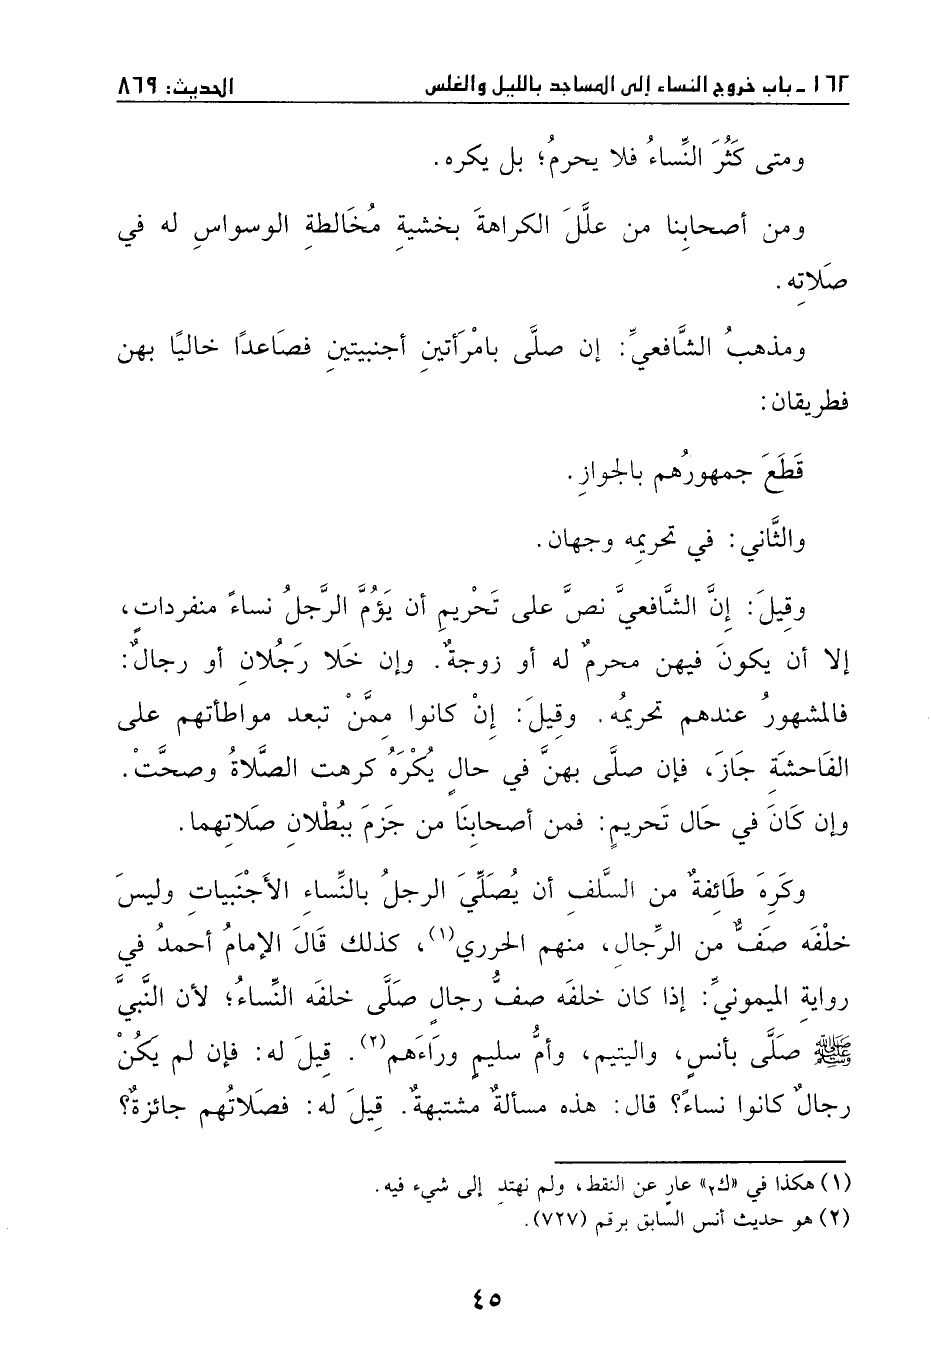 ١٦٢ - باب خروج النساء إلى المساجد بالليل والغلس الحديث: ٨٦٩
ومتى كَثُرَ النِّساءُ فلا يحرمُ؛ بل يكره.
ومن أصحابِنا من علَّلَ الكراهةَ بخشيةِ مُخَالطةِ الوسواسِ له في
صَلاتِه.
ومذهبُ الشَّافعيِّ: إن صلَّى بامْرَأتينِ أجنبيتينِ فصَاعدًا خاليًا بهن
فطريقان:
قَطَعَ جمهورُهم بالجوازِ.
والثَّاني: في تحريمِه وجهان.
وقِيلَ: إنَّ الشَّافعيَّ نصَّ على تَحْريمِ أن يَؤُمَّ الرَّجلُ نساءً منفرداتٍ،
إلا أن يكونَ فيهن محرمٌ له أو زوجةٌ. وإن خَلا رَجُلانِ أو رجالٌ:
فالمشهورُ عندهم تحريمُه. وقِيلَ: إنْ كانوا ممَّنْ تبعد مواطأتهم على
الفَاحشَةِ جَازَ، فإن صلَّى بهنَّ في حالٍ يُكْرَهُ كرهت الصَّلاةُ وصحَّتْ.
وإن كَانَ في حَال تَحريمٍ: فمن أصحابِنَا من جَزَمَ ببُطْلانِ صَلاتِهما.
وكَرِهَ طَائفةٌ من السَّلفِ أن يُصَلِّيَ الرجلُ بالنِّساءِ الأَجْنَبياتِ وليسَ
خلْفَه صَفٌّ من الرِّجالِ، منهم الحرري(١)، كذلك قَالَ الإمامُ أحمدُ في
روايةِ الميمونيِّ: إذا كان خلفَه صفُّ رجالٍ صَلَّى خلفَه النِّساءُ؛ لأن النَّبيَّ
ﷺ صَلَّى بأنسٍ، واليتيمِ، وأمُّ سليمٍ ورَاءَهم(٢). قِيلَ له: فإن لم يَكُنْ
رجالٌ كانوا نساءً؟ قال: هذه مسألةٌ مشتبهةٌ. قِيلَ له: فصَلاتُهم جائزةٌ؟
(١) هكذا في «ك٢» عارٍ عن النقط، ولم نهتدِ إلى شيء فيه.
(٢) هو حديث أنس السابق برقم (٧٢٧).
٤٥